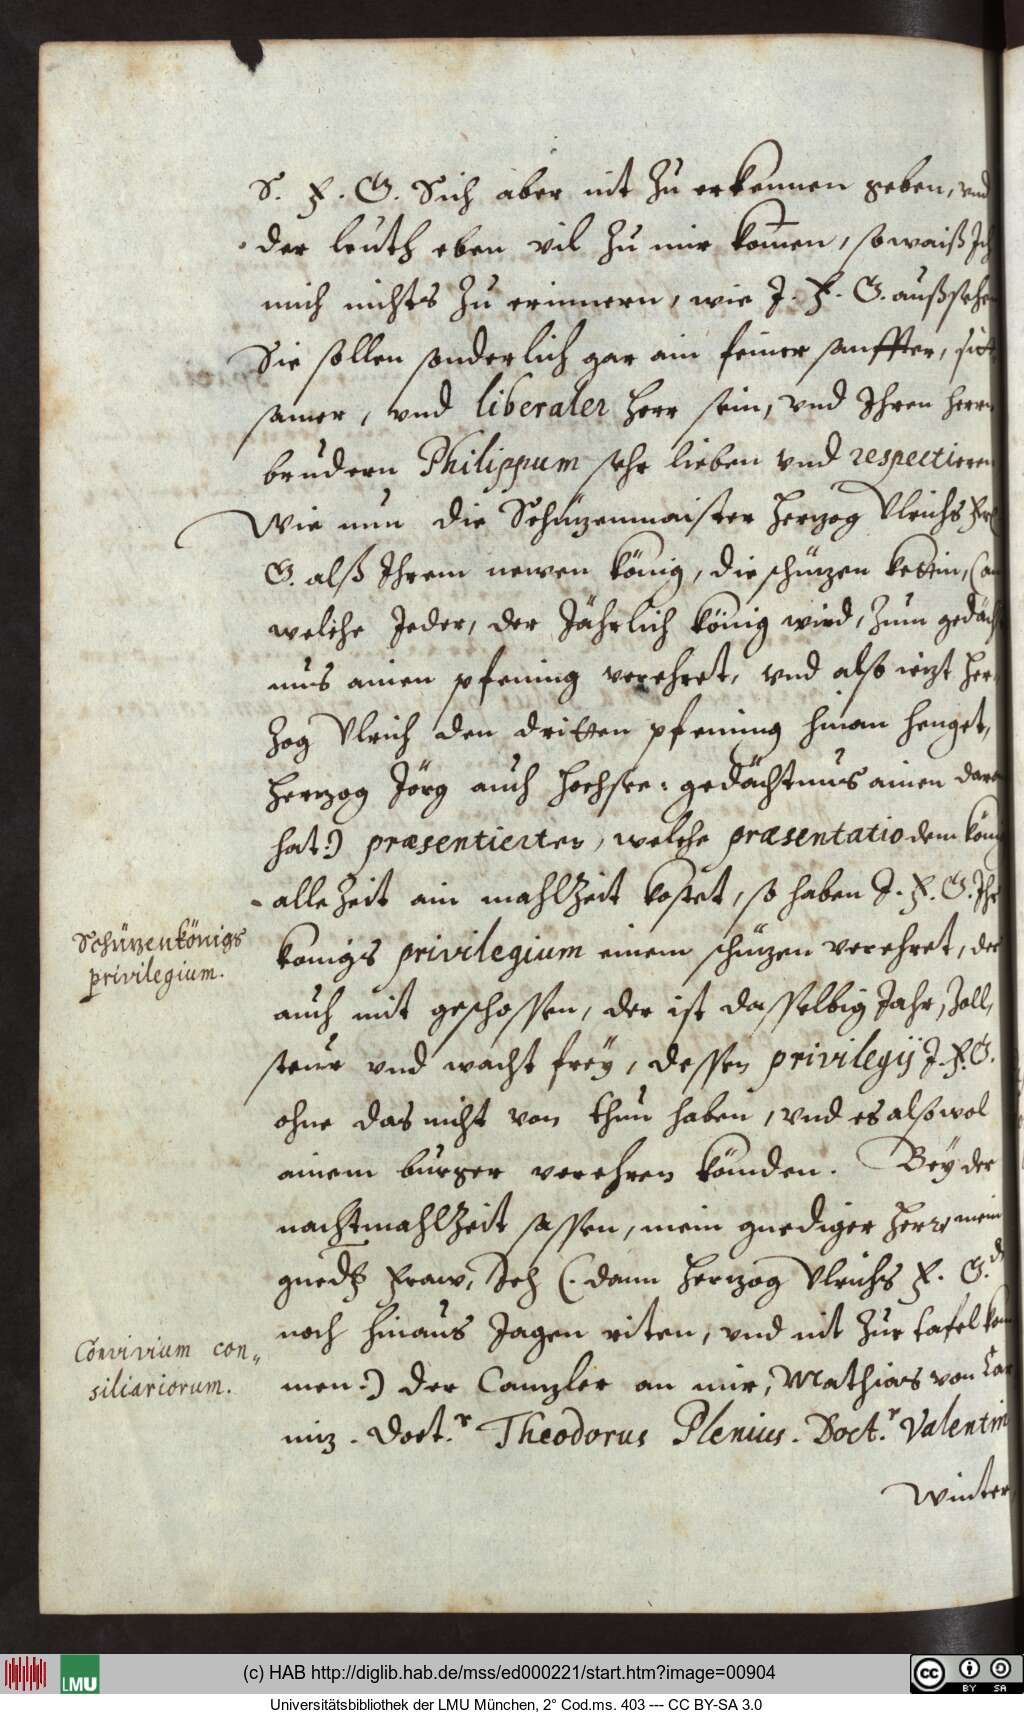 S. F. G. Sich aber nit Zu erkennen geben, vnd
der leüth eben vil Zu mir komen, so waiß Ich
mich nichts Zu erinnern, wie J. F. G. außsehen
Sie sollen sonderlich gar ain feiner sanffter, sitt
samer, vnd liberaler herr sein, vnd Ihren herrn
brudern Philippum sehr lieben vnd respectieren
Wie nun die Schüzenmaister Herzog Vlrichs
G. alß Ihrem newen König, die schüzen kettin, (an
welche Jeder, der Jährlich König wird, Zum gedächt
nus ainen pfening verehret, vnd also iezt Her
Zog Vlrich den dritten pfenning hinan henget,
Herzog Jörg auch hochse: gedächtnus ainen daran
hat:) præsentierten, welche præsentatio dem König
alleZeit ain mahlZeit kostet, so haben J. F. G. Ihr
Schüzenkönigs
privilegium.
Konigs privilegium einem schüzen verehret, der
auch mit geschossen, der ist dasselbig Jahr, Zoll,
steur vnd wacht freÿ, dessen privilegij J. F. G.
ohne das nicht von thun haben, vnd es alsowol
ainem burger verehren könden. Beÿ der
nachtmahlZeit sassen, mein gnediger Herr, mein
gned: Fraw, Ich (: dann Herzog Vlrichs F. G.
noch hinaus Jagen riten, vnd nit Zur tafel kom
Convivium con„
siliariorum.
men:) der Canzler an mir, Mathias von
miz. Doct.r Theodorus Plenius. Doct.r Valentin
Winter
(c) HAB http://diglib.hab.de/mss/ed000221/start.htm?image=00904
LMU
cc BY SA
Universitätsbibliothek der LMU München, 2° Cod.ms. 403 --- CC BY-SA 3.0